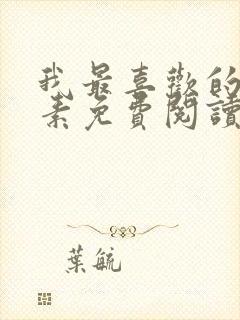 我最喜歡的
素免費閱讀
葉毓